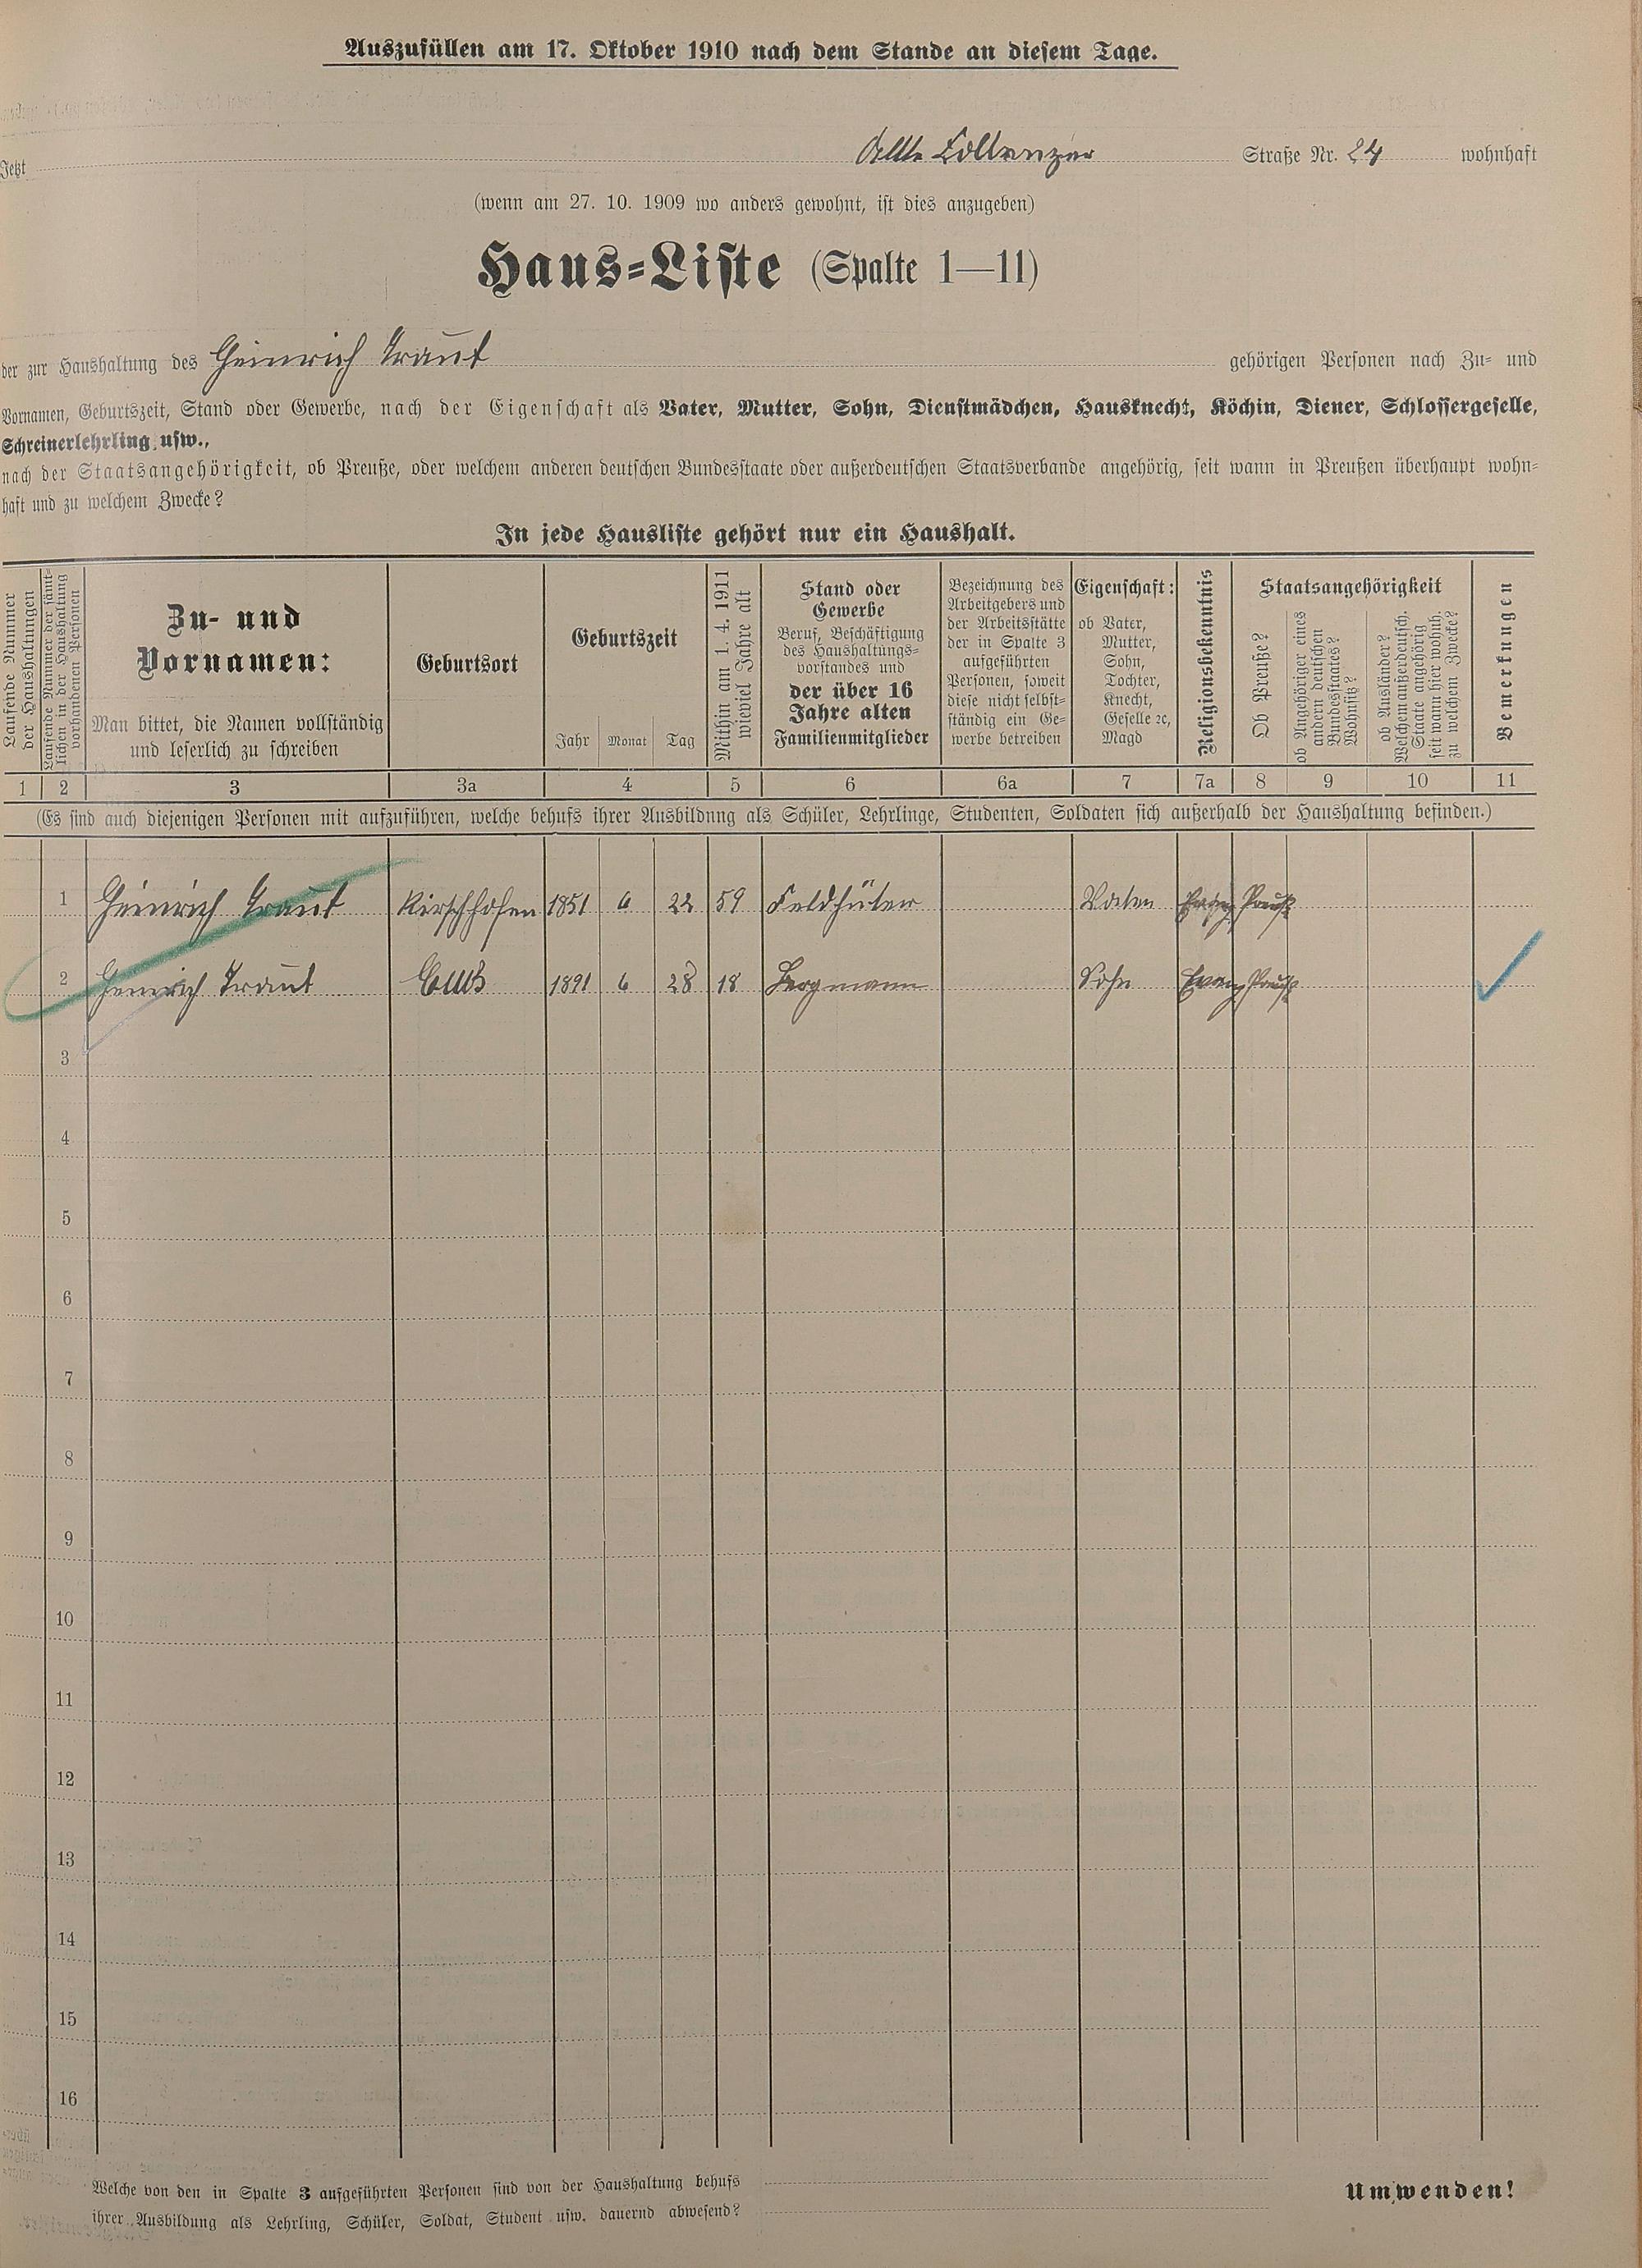 Auszufüllen am 17. Oktober 1910 nach dem Stande an diesem Tage.
Jetzt Straße Nr. 24 wohnhaft
(wenn am 27. 10. 1909 wo anders gewohnt, ist dies anzugeben)
Haus-Liste (Spalte 1—11)
der zur Haushaltung des Heinrich Traut gehörigen Personen nach Zu- und
Vornamen, Geburtszeit, Stand oder Gewerbe, nach der Eigenschaft als Vater, Mutter, Sohn, Dienstmädchen, Hausknecht, Köchin, Diener, Schlossergeselle,
Schreinerlehrling usw.,
nach der Staatsangehörigkeit, ob Preuße, oder welchem anderen deutschen Bundesstaate oder außerdeutschen Staatsverbande angehörig, seit wann in Preußen überhaupt wohn-
haft und zu welchem Zwecke?
In jede Hausliste gehört nur ein Haushalt.
Laufende Nummer
der Haushaltungen
Laufende Nummer der sämt-
lichen in der Haushaltung
vorhandenen Personen
Zu- und
Vornamen:
Man bittet, die Namen vollständig
und leserlich zu schreiben
Geburtsort
Geburtszeit
Jahr Monat Tag
Mithin am 1. 4. 1911
wieviel Jahre alt
Stand oder
Gewerbe
Beruf, Beschäftigung
des Haushaltungs-
vorstandes und
der über 16
Jahre alten
Familienmitglieder
Bezeichnung des
Arbeitgebers und
der Arbeitsstätte
der in Spalte 3
aufgeführten
Personen, soweit
diese nicht selbst-
ständig ein Ge-
werbe betreiben
Eigenschaft:
ob Vater,
Mutter,
Sohn,
Tochter,
Knecht,
Geselle ꝛc,
Magd
Religionsbekenntnis
Staatsangehörigkeit
Ob Preuße?
ob Angehöriger eines
andern deutschen
Bundesstaates?
Wohnsitz?
ob Ausländer?
Welchem außerdeutsch.
Staate angehörig
seit wann hier wohnh.
zu welchem Zwecke?
Bemerkungen
1 2 3 3a 4 5 6 6a 7 7a 8 9 10 11
(Es sind auch diejenigen Personen mit aufzuführen, welche behufs ihrer Ausbildung als Schüler, Lehrlinge, Studenten, Soldaten sich außerhalb der Haushaltung befinden.)
1 Heinrich Traut Kirschhofen 1851 6 22 59 Feldhüter Vater Evang Preuß
2 Heinrich Traut Ems 1891 6 28 18 Bergmann Sohn Evang Preuß
3
4
5
6
7
8
9
10
11
12
13
14
15
16
Welche von den in Spalte 3 aufgeführten Personen sind von der Haushaltung behufs
ihrer Ausbildung als Lehrling, Schüler, Soldat, Student usw. dauernd abwesend?
Umwenden!